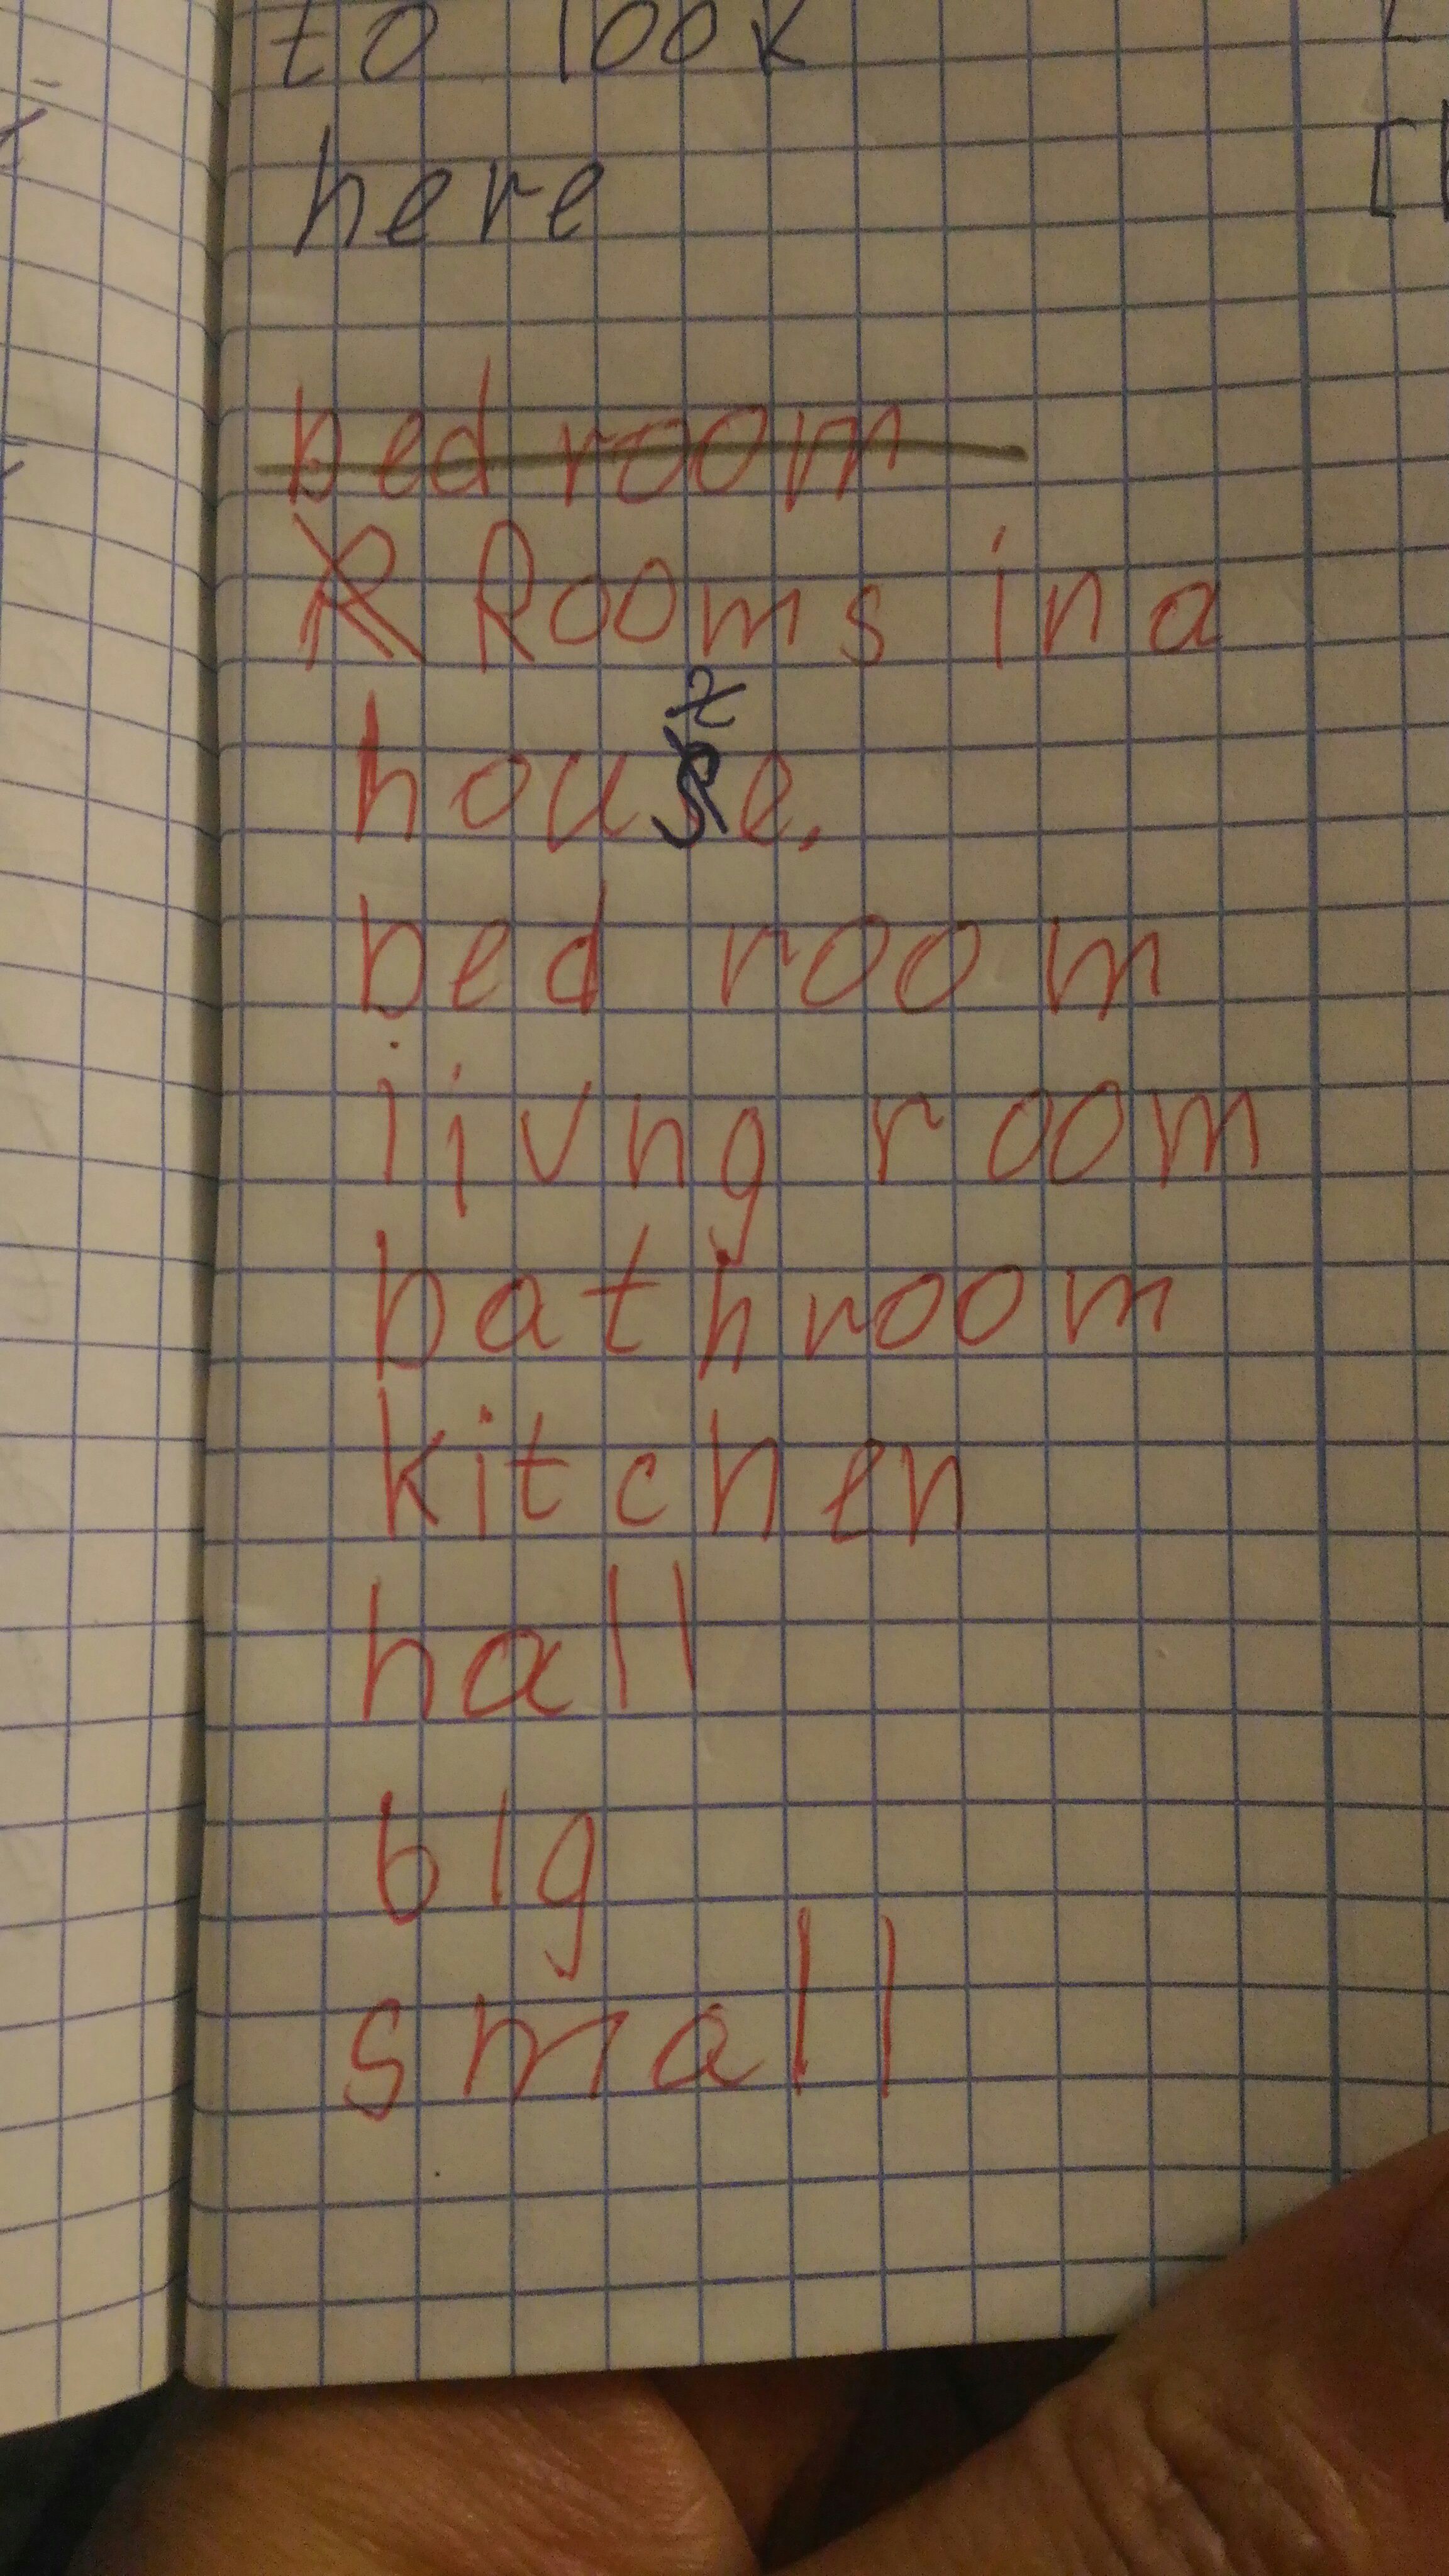 to look
here
bed room
R Rooms in a
house.
bed room
ijvng room
bathroom
kitchen
hall
big
small